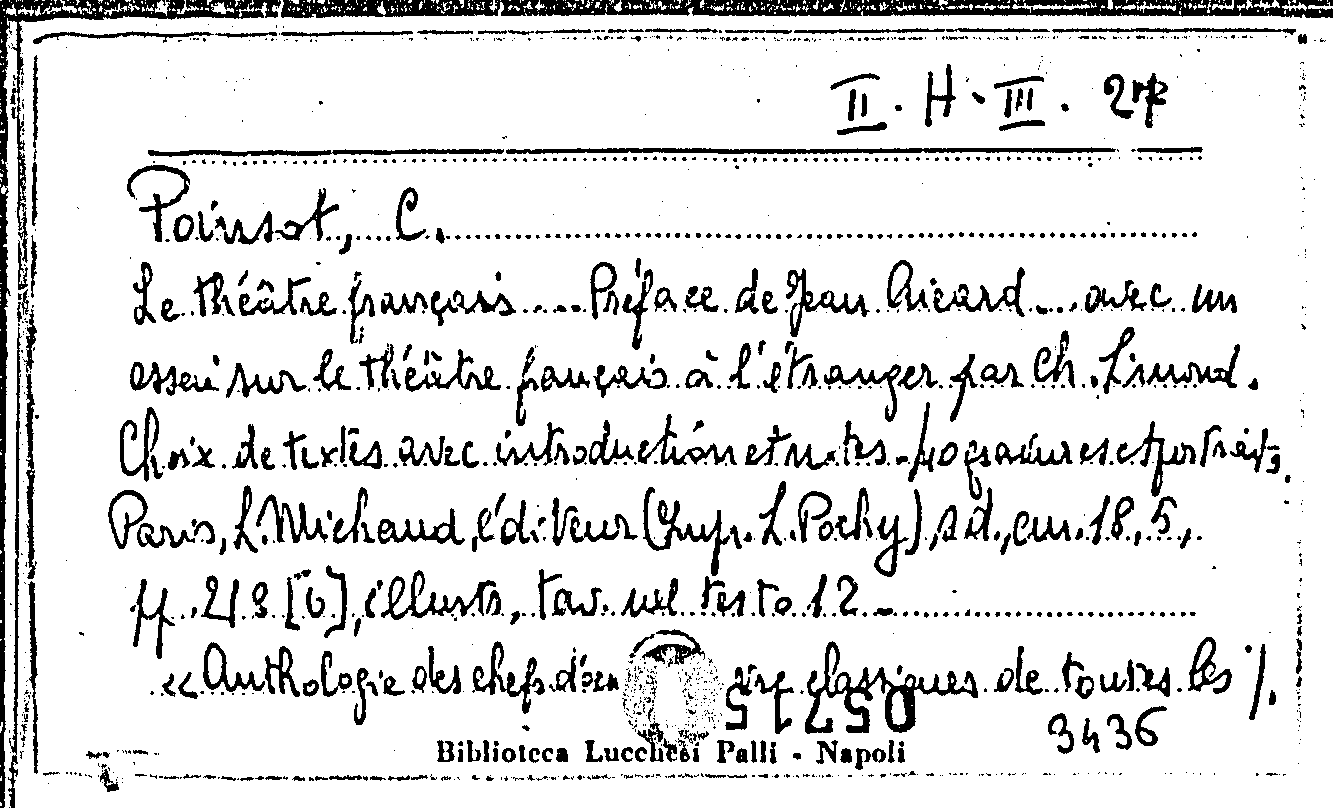 II. H. III. 27
Poinsot, C.
Le théâtre français.... Préface de Jean Aicard.... avec un
essai sur le théâtre français à l'étranger par Ch. Simond.
Choix de textes avec introduction et notes - 40 gravures et portraits.
Paris, L. Michaud, éditeur (Impr. L. Pochy), s.d., cm. 18,5,
pp. 213 [6], illustr., tav. nel testo 12 -
«Anthologie des chefs d'œu classiques de toutes les %.
05715
3436
Biblioteca Lucchesi Palli - Napoli